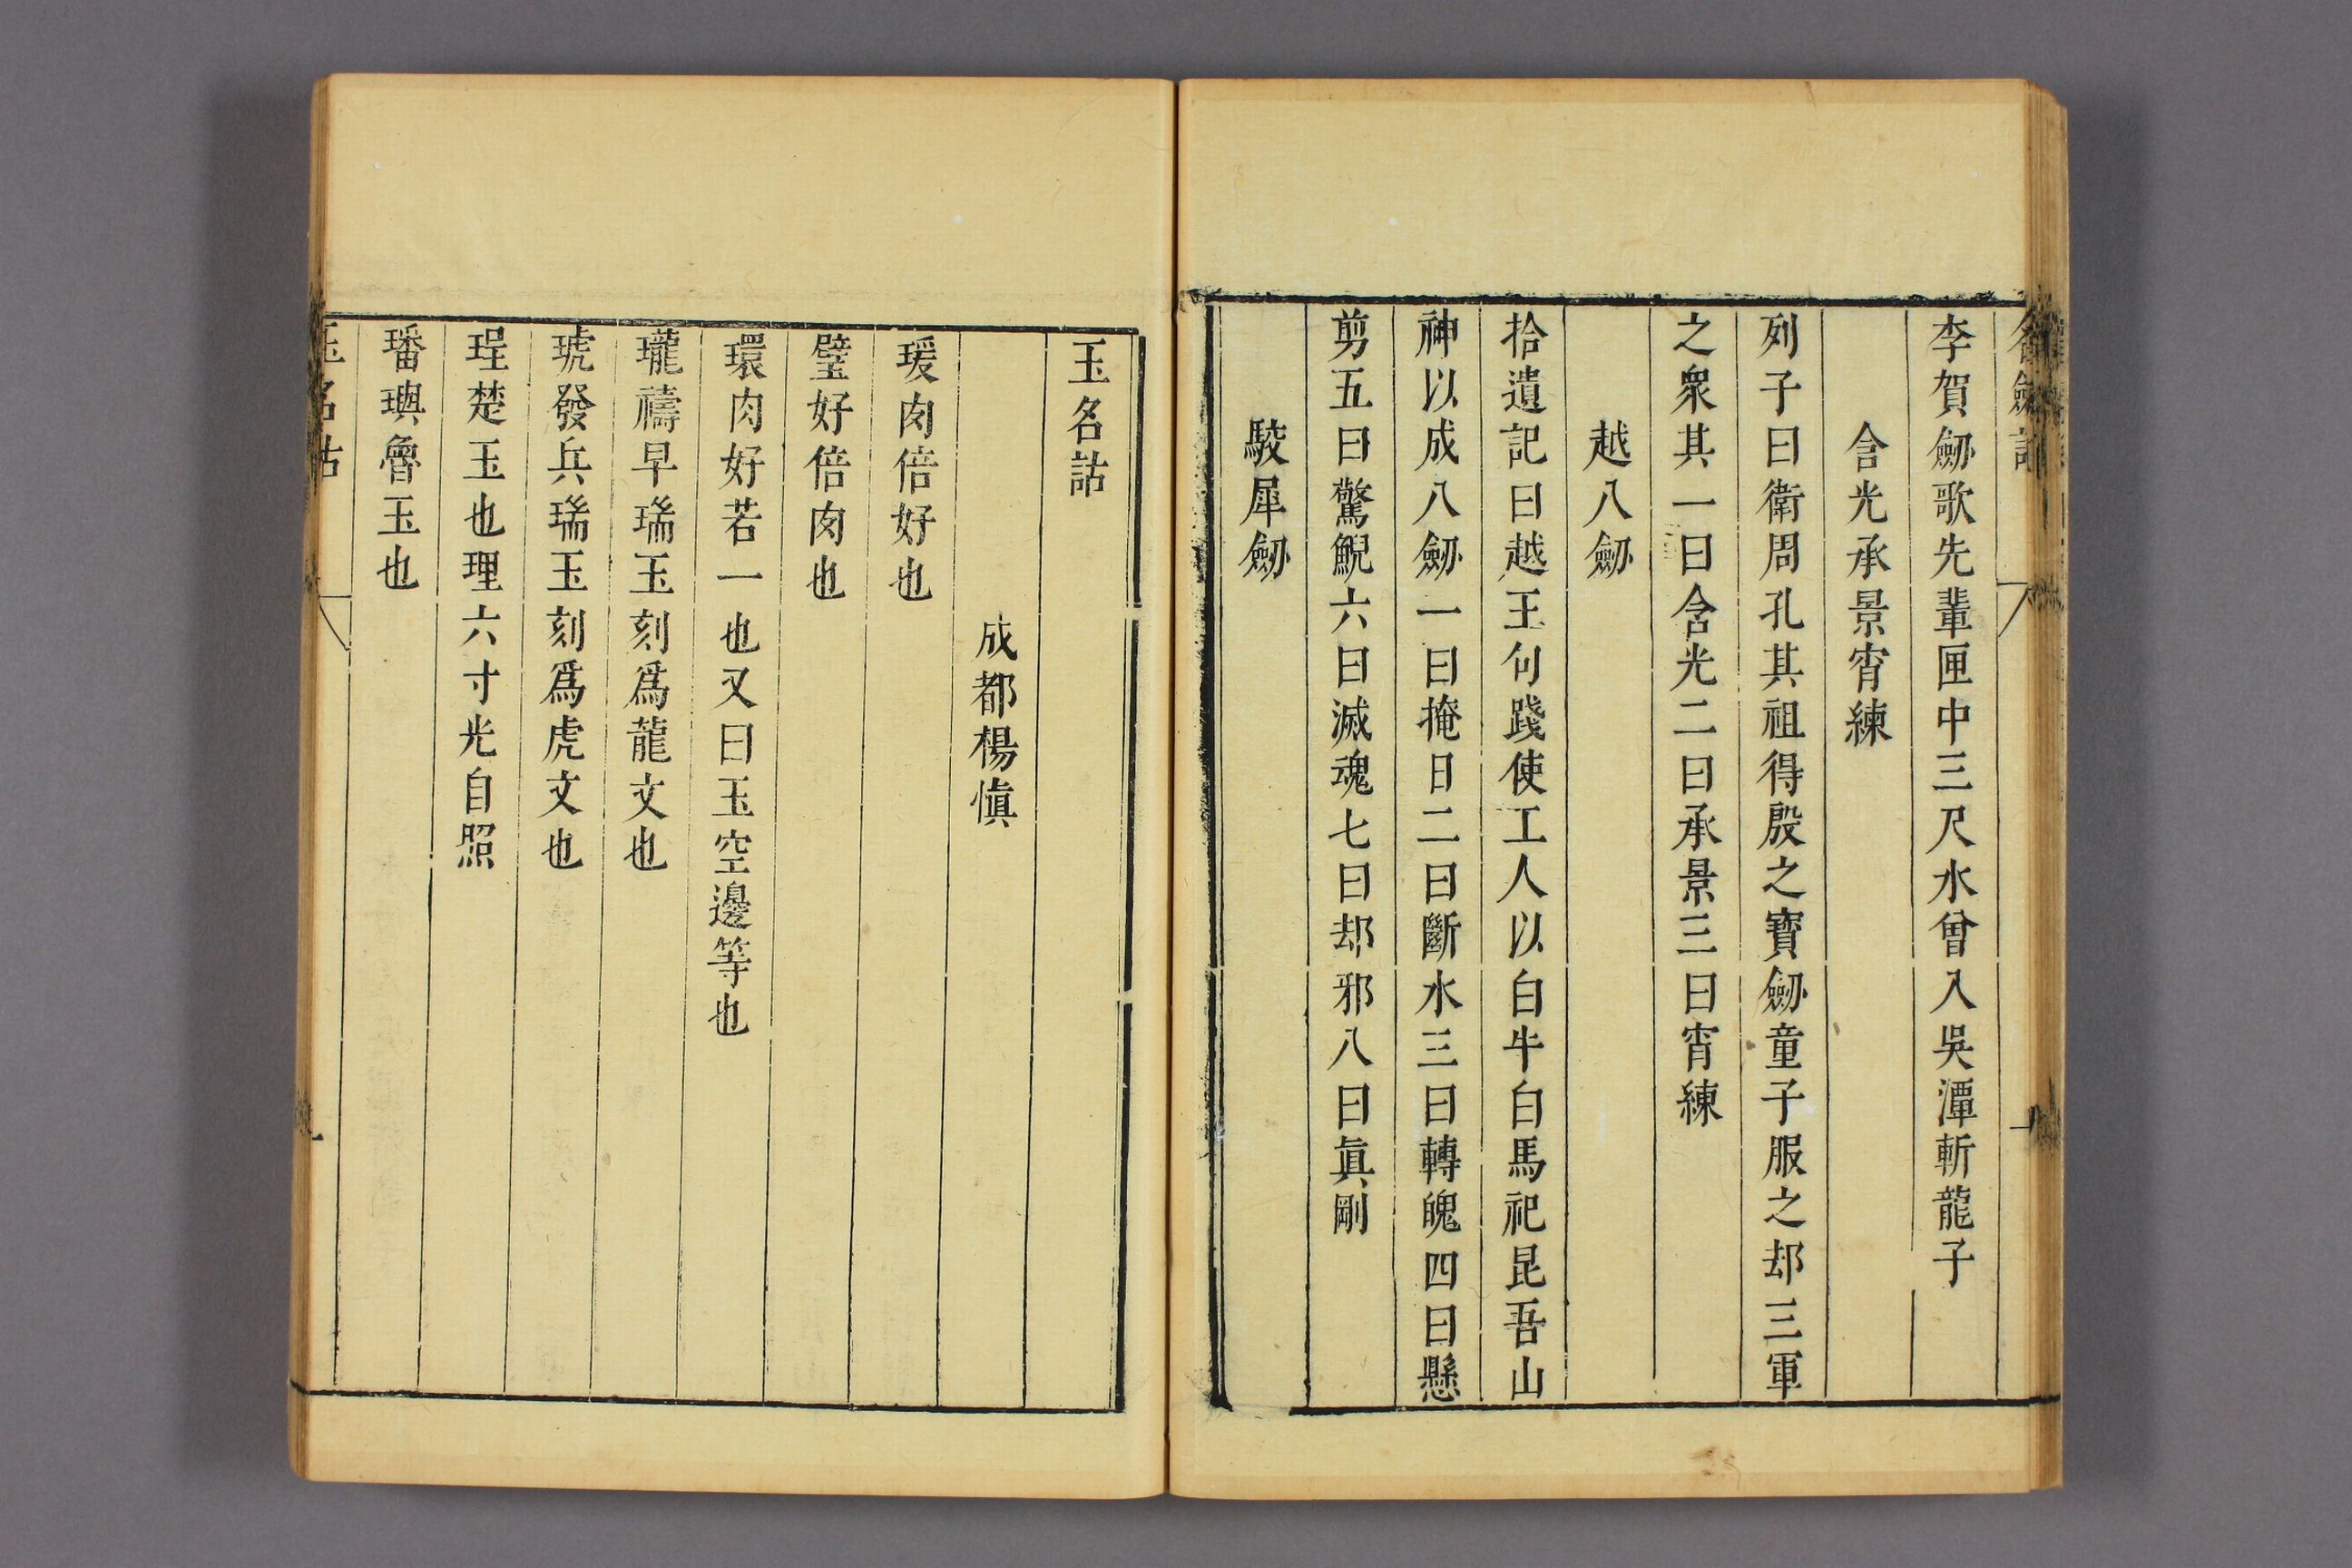 李賀劒歌先輩匣中三尺水曾入吳潭斬龍子
含光承景宵練
列子曰衛周孔其祖得殷之寶劒童子服之却三軍
之衆其一曰含光二曰承景三曰宵練
越八劒
拾遺記曰越王句踐使工人以白牛白馬祀昆吾山
神以成八劒一曰掩日二曰斷水三曰轉魄四曰懸
剪五曰驚鯢六曰滅魂七曰却邪八曰眞剛
駿犀劒
玉名詁
成都楊愼
瑗肉倍好也
璧好倍肉也
環肉好若一也又曰玉空邊等也
瓏禱旱瑞玉刻爲龍文也
琥發兵瑞玉刻爲虎文也
珵楚玉也理六寸光自照
璠璵魯玉也
玉名詁